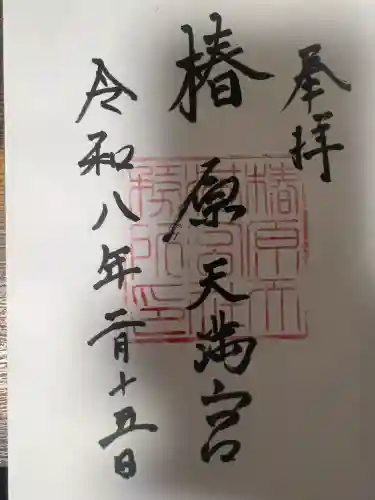 奉拝
椿原天満宮
令和八年二月十五日
椿原天
満宮社
務所印